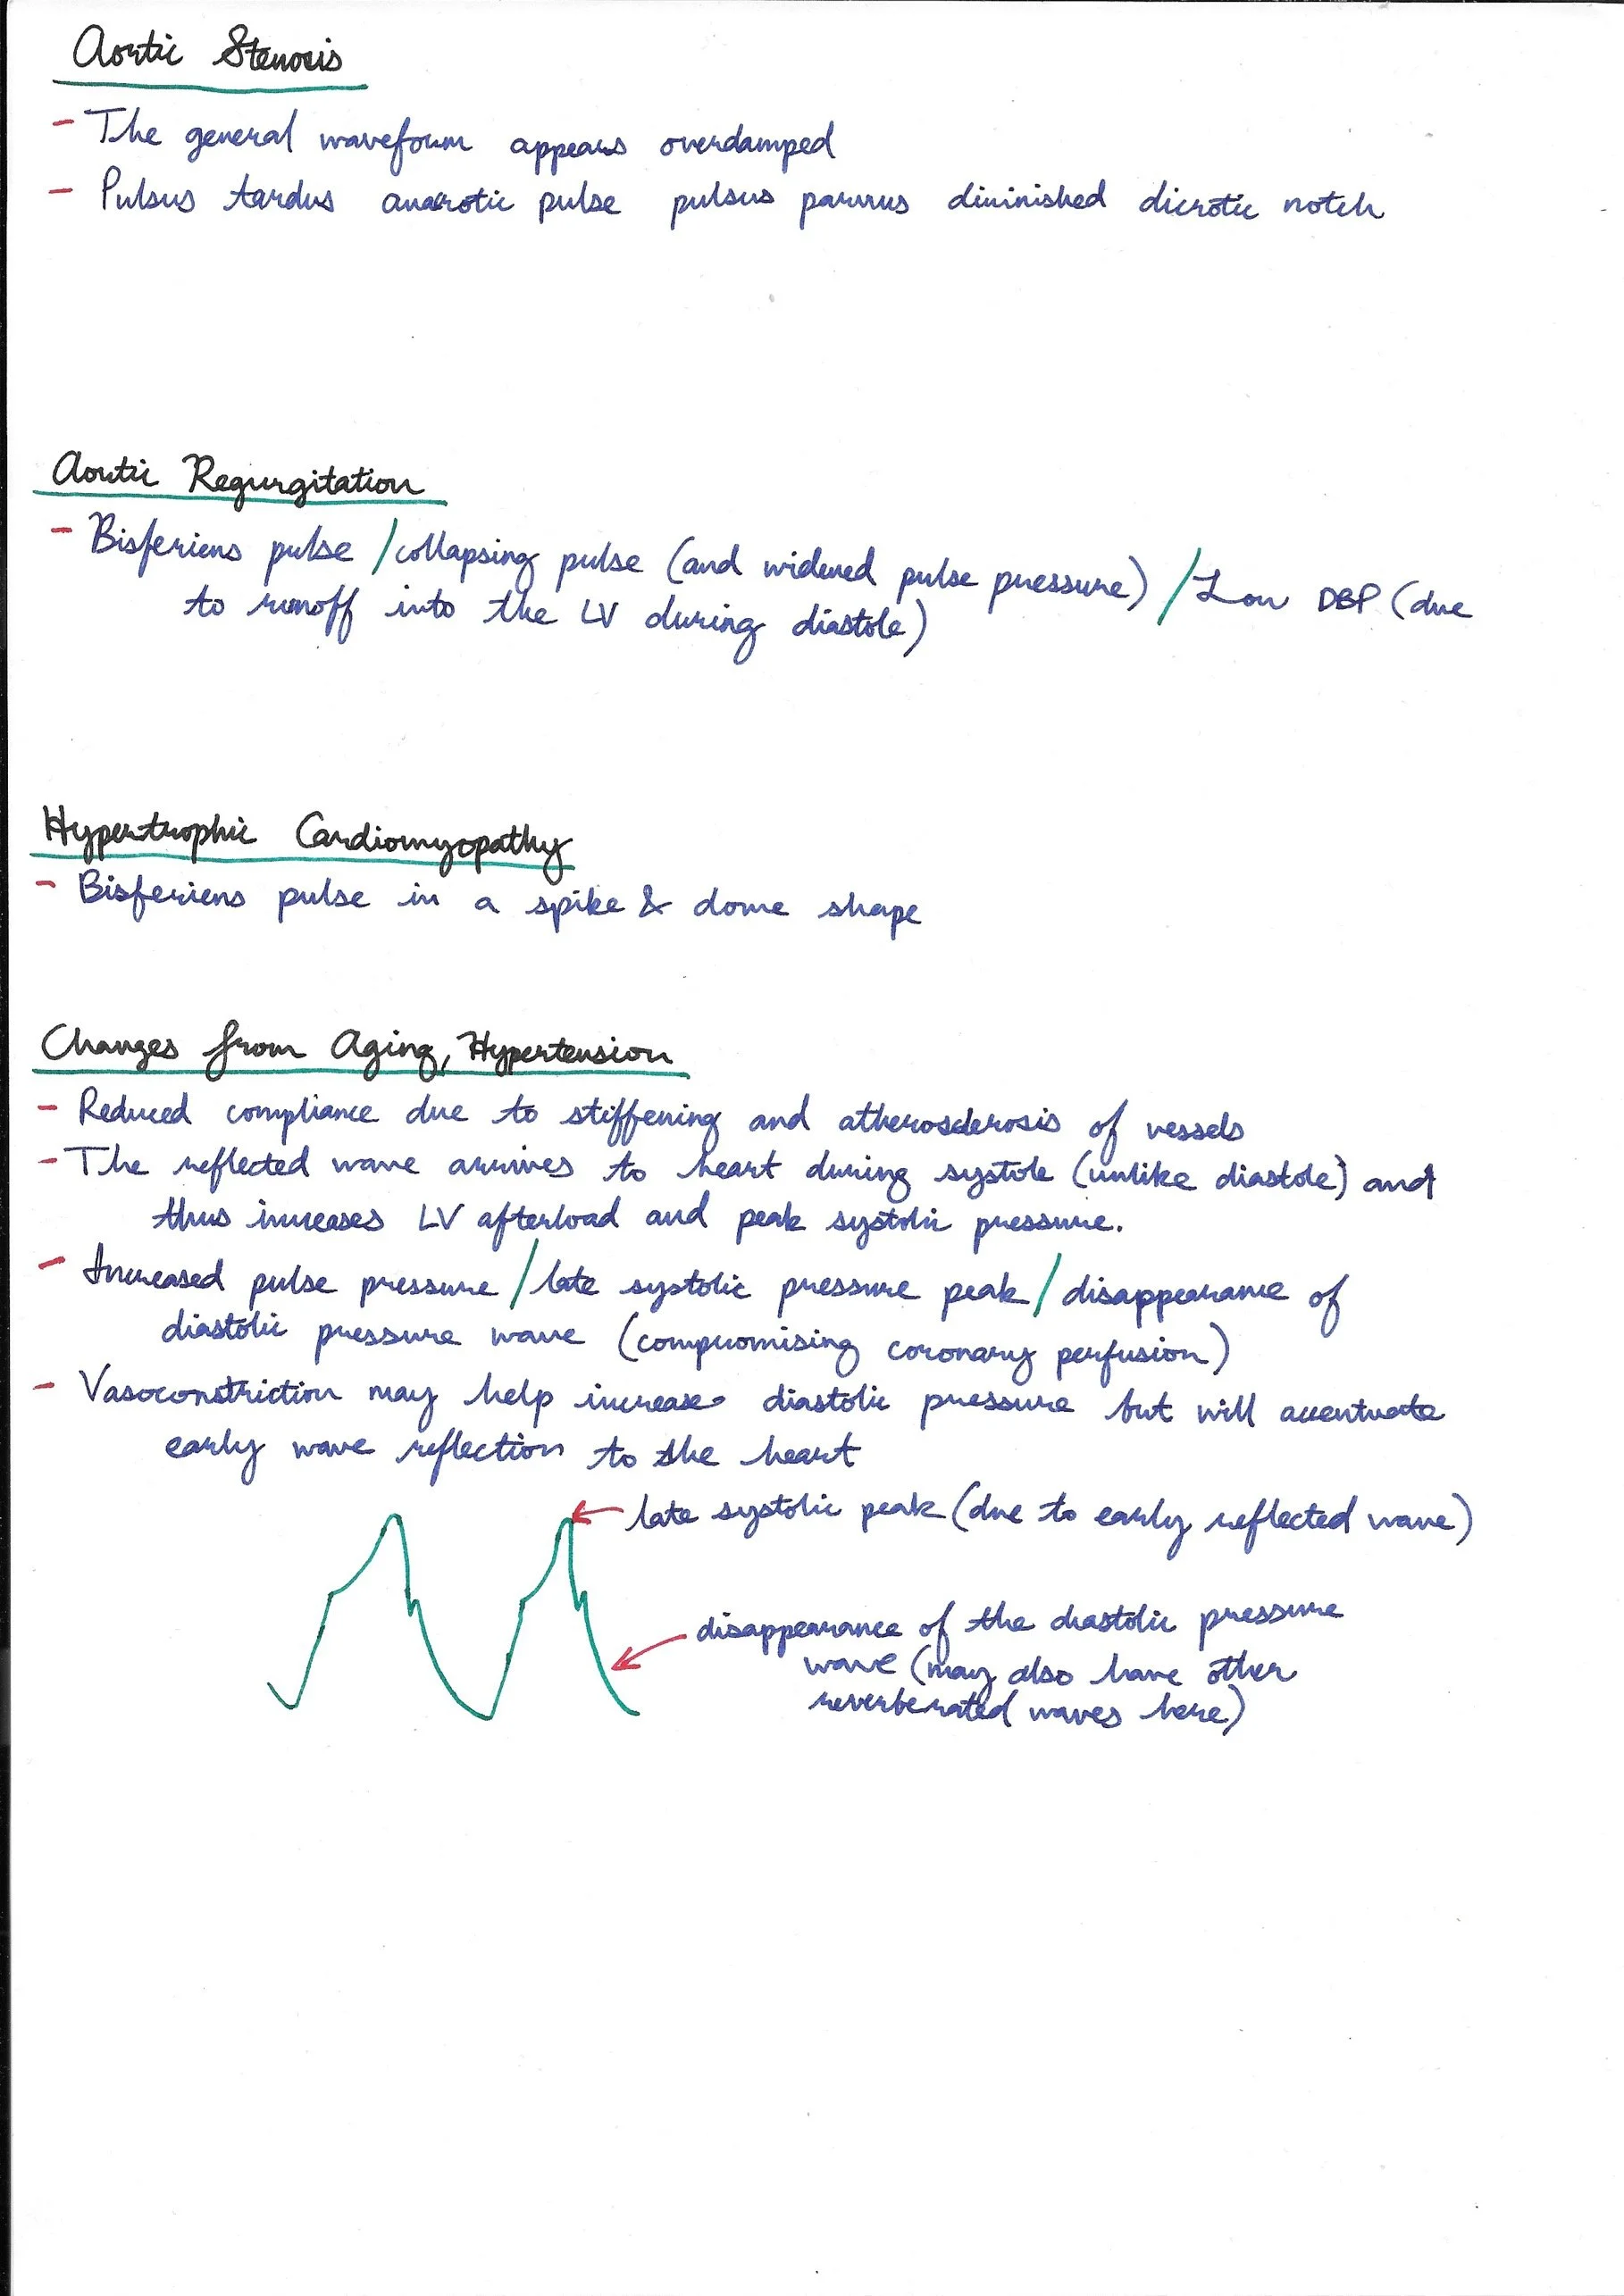 Aortic Stenosis
- The general waveform appears overdamped
- Pulsus tardus anacrotic pulse pulsus parvus diminished dicrotic notch
Aortic Regurgitation
- Bisferiens pulse / collapsing pulse (and widened pulse pressure) / Low DBP (due
to runoff into the LV during diastole)
Hypertrophic Cardiomyopathy
- Bisferiens pulse in a spike & dome shape
Changes from Aging, Hypertension
- Reduced compliance due to stiffening and atherosclerosis of vessels
- The reflected wave arrives to heart during systole (unlike diastole) and
thus increases LV afterload and peak systolic pressure.
- Increased pulse pressure / late systolic pressure peak / disappearance of
diastolic pressure wave (compromising coronary perfusion)
- Vasoconstriction may help increase diastolic pressure but will accentuate
early wave reflection to the heart
late systolic peak (due to early reflected wave)
disappearance of the diastolic pressure
wave (may also have other
reverberated waves here)